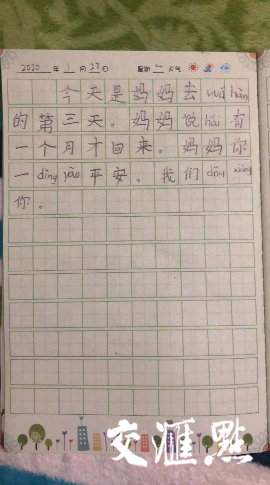 2020 年 1 月 27 日 星期 一 天气
今天是妈妈去wǔ hàn
的第三天。妈妈说hái有
一个月才回来。妈妈你
一dìng yào平安。我们dōu xiǎng
你。
交滙點